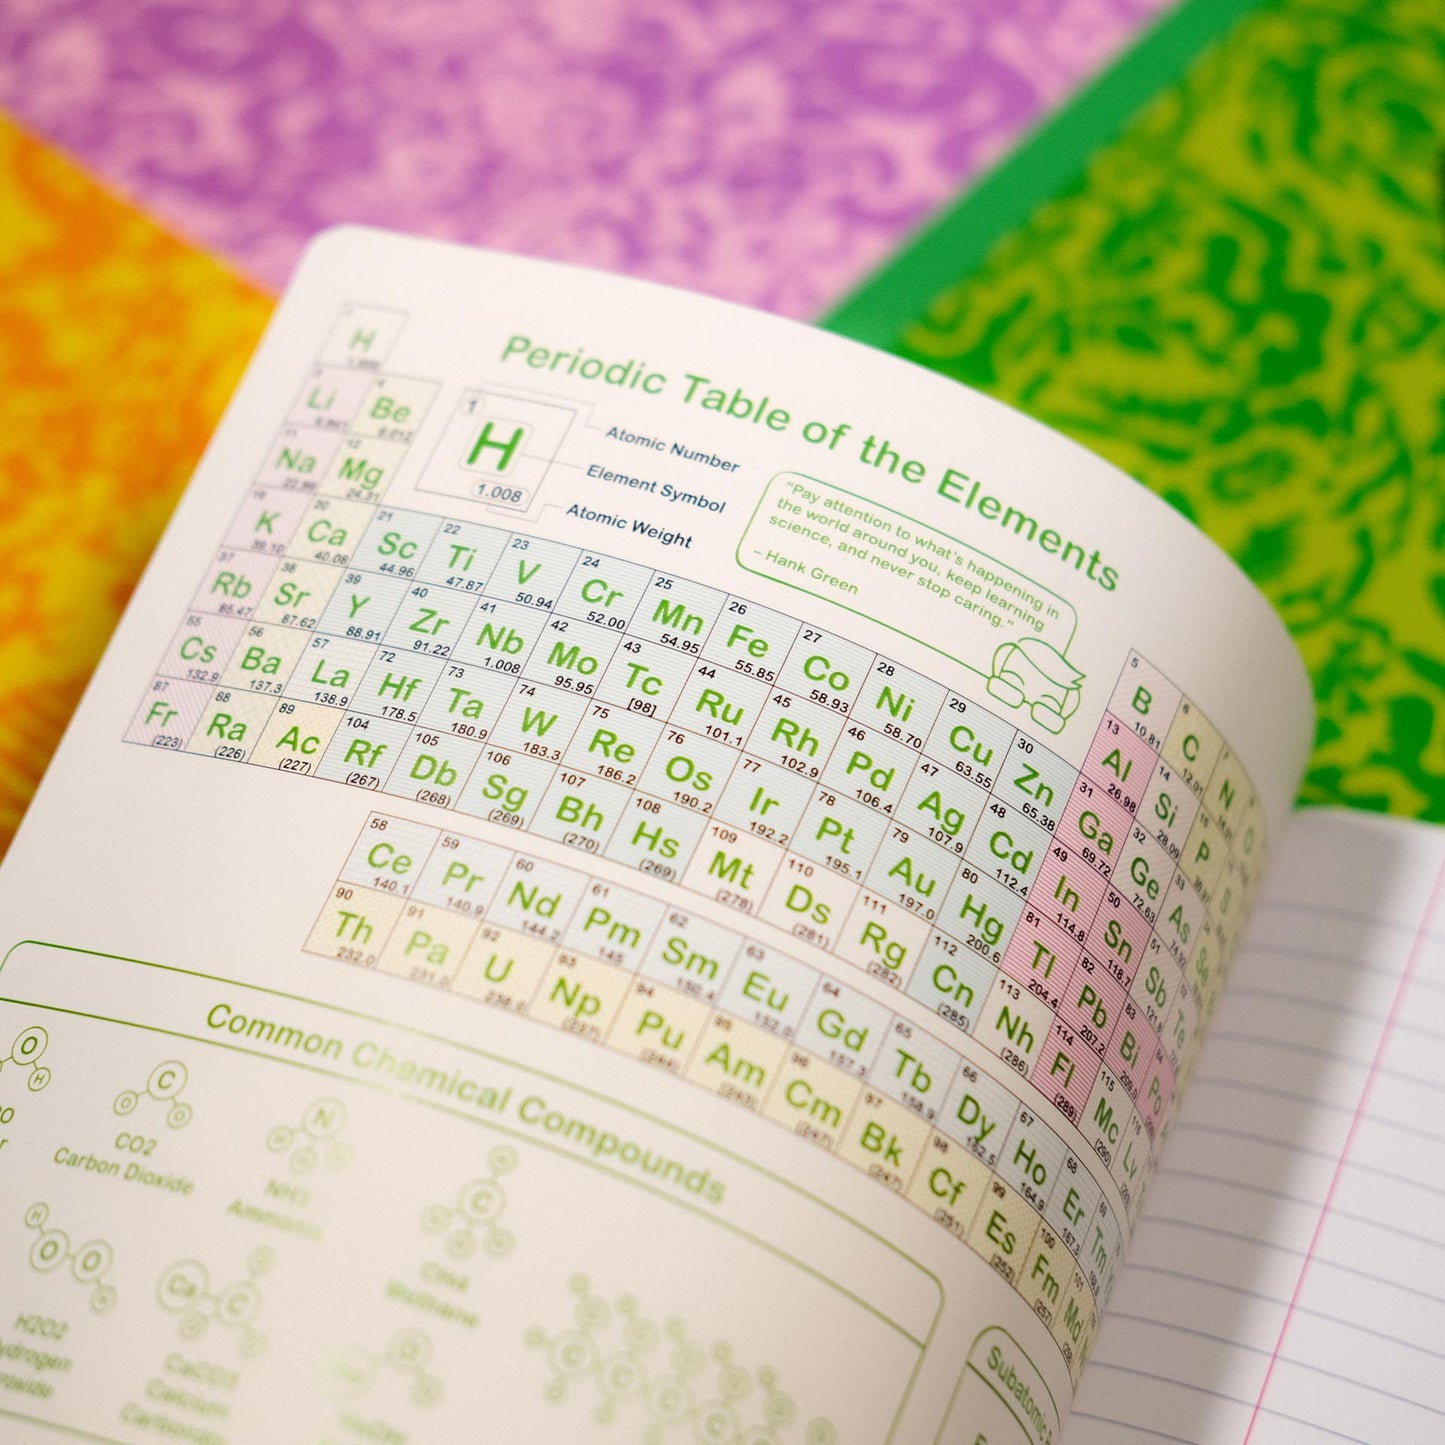 Periodic Table of the Elements
1
H
1.008
Atomic Number
Element Symbol
Atomic Weight
"Pay attention to what's happening in
the world around you, keep learning
science, and never stop caring."
– Hank Green
H
Li Be
Na Mg
24.31
K Ca
40.08
21 22 23 24 25 26 27 28 29 30
Sc Ti V Cr Mn Fe Co Ni Cu Zn
44.96 47.87 50.94 52.00 54.95 55.85 58.93 58.70 63.55 65.38
37 38 39 40 41 42 43 44 45 46 47 48
Rb Sr Y Zr Nb Mo Tc Ru Rh Pd Ag Cd
85.47 87.62 88.91 91.22 1.008 95.95 [98] 101.1 102.9 106.4 107.9 112.4
55 56 57 72 73 74 75 76 77 78 79 80
Cs Ba La Hf Ta W Re Os Ir Pt Au Hg
132.9 137.3 138.9 178.5 180.9 183.3 186.2 190.2 192.2 195.1 197.0 200.6
87 88 89 104 105 106 107 108 109 110 111 112 113 114 115
Fr Ra Ac Rf Db Sg Bh Hs Mt Ds Rg Cn Nh Fl Mc Lv
(223) (226) (227) (267) (268) (269) (270) (269) (278) (281) (282) (285) (286) (289) (290)
5
B C N
10.81 12.01
13 14 15
Al Si P
26.98 28.09
31 32 33
Ga Ge As Se
69.72 72.63 74.92
49 50 51
In Sn Sb Te
114.8 118.7 121.8
81 82 83 84
Tl Pb Bi Po
204.4 207.2 209.0
58 59 60 61 62 63 64 65 66 67 68
Ce Pr Nd Pm Sm Eu Gd Tb Dy Ho Er Tm
140.1 140.9 144.2 145 150.4 152.0 157.3 158.9 162.5 164.9 167.3
90 91 92 93 94 95 96 97 98 99 100 101
Th Pa U Np Pu Am Cm Bk Cf Es Fm Md
232.0 231.0 238.0 (237) (244) (243) (247) (247) (251) (252) (257)
Common Chemical Compounds
O
H
C
O
O
N
C
CO2
Carbon Dioxide
NH3
Ammonia
CH4
Methane
H
O O
Ca C
H2O2
CaCO3
Calcium
Carbonate
C
C
C
Subatomic